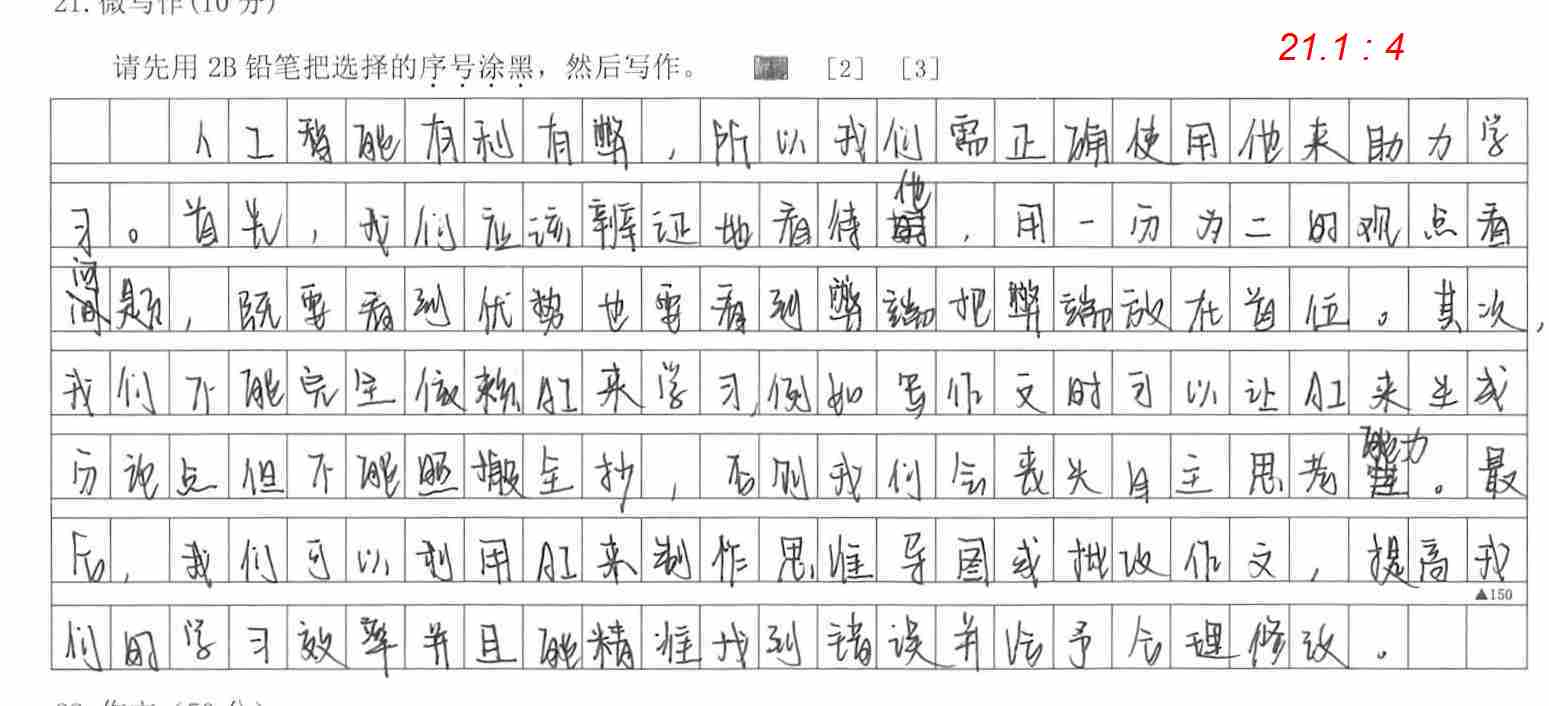 21. 微写作(10分)
21.1：4
请先用 2B 铅笔把选择的序号涂黑，然后写作。 [2] [3]
人工智能有利有弊，所以我们需正确使用他来助力学
习。首先，我们应该辨证地看待他，用一分为二的观点看
问题，既要看到优势也要看到弊端把弊端放在首位。其次，
我们不能完全依赖AI来学习,例如写作文时可以让AI来生成
分论点但不能照搬全抄，否则我们会丧失自主思考能力。最
后，我们可以利用AI来制作思维导图或批改作文，提高我
▲150
们的学习效率并且能精准找到错误并给予合理修改。